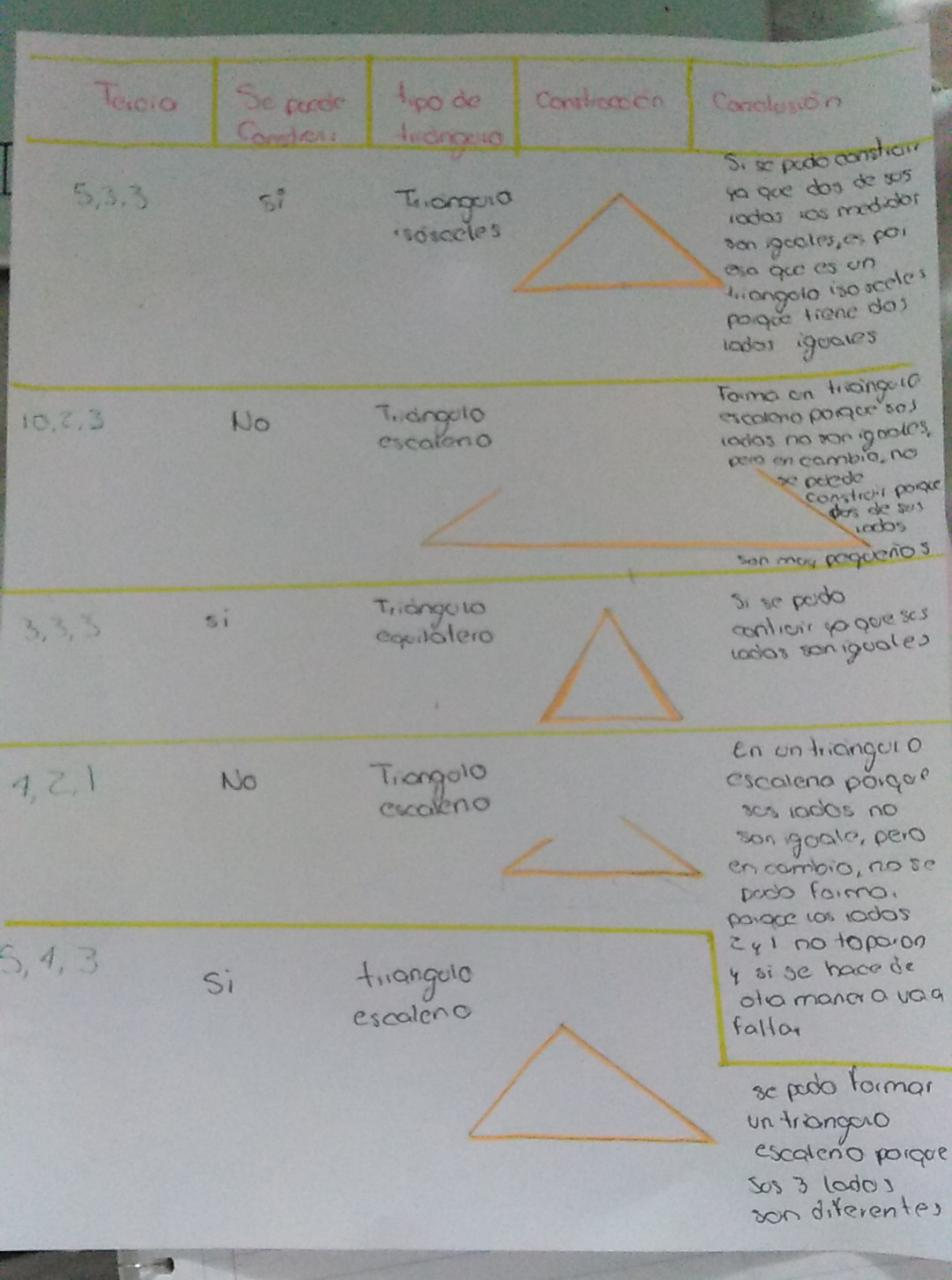 Tercia
Se puede
Construir
tipo de
triángulo
Construcción
Conclusión
5,3,3
si
Triángulo
isósceles
Si se pudo construir
ya que dos de sus
lados las medidas
son iguales, es por
eso que es un
triangulo isosceles
porque tiene dos
lados iguales
10,2,3
No
Triángulo
escaleno
Forma un triángulo
escaleno porque sus
lados no son iguales,
pero en cambio, no
se puede
construir porque
dos de sus
lados
son muy pequeños
3,3,3
si
Triángulo
equilátero
Si se pudo
contiuir ya que sus
lados son iguales
4,2,1
No
Triangulo
escaleno
En un triángulo
escaleno porque
sus lados no
son iguale, pero
en cambio, no se
pudo forma.
porque los lados
2 y 1 no toparon
y si se hace de
otra manera va a
fallar
5,4,3
Si
triangulo
escaleno
se pudo formar
un triangulo
escaleno porque
sus 3 lados
son diferentes